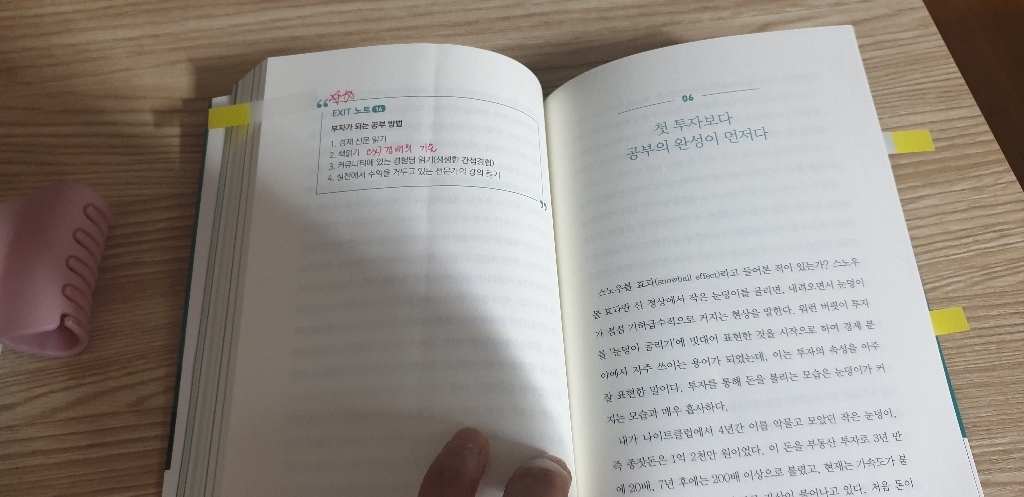 EXIT 노트 14
투자가 되는 공부 방법
1. 경제 신문 읽기
2. 책읽기
3. 커뮤니티에 있는 경험담 읽기(생생한 간접경험)
4. 실전에서 수익을 거두고 있는 전문가의 강의 듣기
06
첫 투자보다
공부의 완성이 먼저다
스노우볼 효과(snowball effect)라고 들어본 적이 있는가? 스노우
볼 효과란 산 정상에서 작은 눈덩이를 굴리면, 내려오면서 눈덩이
가 점점 기하급수적으로 커지는 현상을 말한다. 워런 버핏이 투자
를 '눈덩이 굴리기'에 빗대어 표현한 것을 시작으로 하여 경제 분
야에서 자주 쓰이는 용어가 되었는데, 이는 투자의 속성을 아주
잘 표현한 말이다. 투자를 통해 돈을 불리는 모습은 눈덩이가 커
지는 모습과 매우 흡사하다.
내가 나이트클럽에서 4년간 이를 악물고 모았던 작은 눈덩이,
즉 종잣돈은 1억 2천만 원이었다. 이 돈을 부동산 투자로 3년 반
에 20배, 7년 후에는 200배 이상으로 불렸고, 현재는 가속도가 붙
불어나고 있다. 처음 돈이